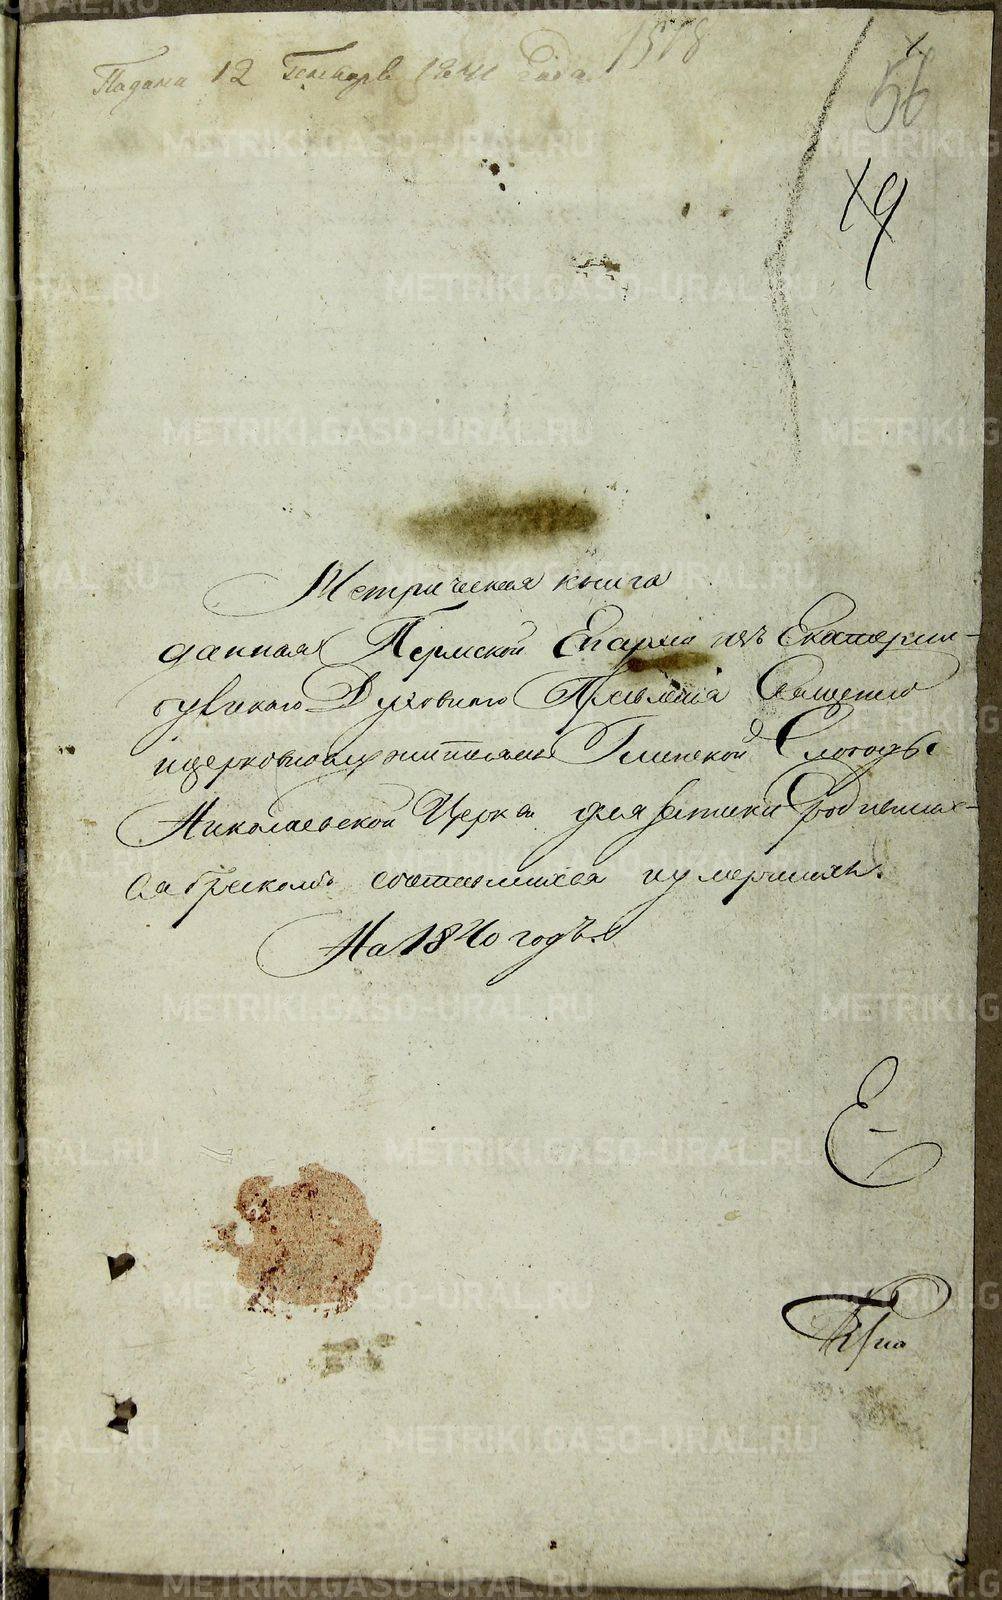 Подана 12 Генваря 1841 года
1578
56
19
Метрическая книга
данная Пермской Епархіи изъ Екатерин-
бугскаго Духовнаго Правленія Священно
ицерковнослужителямъ Глинской Слободы
Николаевской Церкви для записки Родивших-
ся бракомъ сочетавшихся иумершихъ.
На 1840 годъ.
METRIKI.GASO-URAL.RU